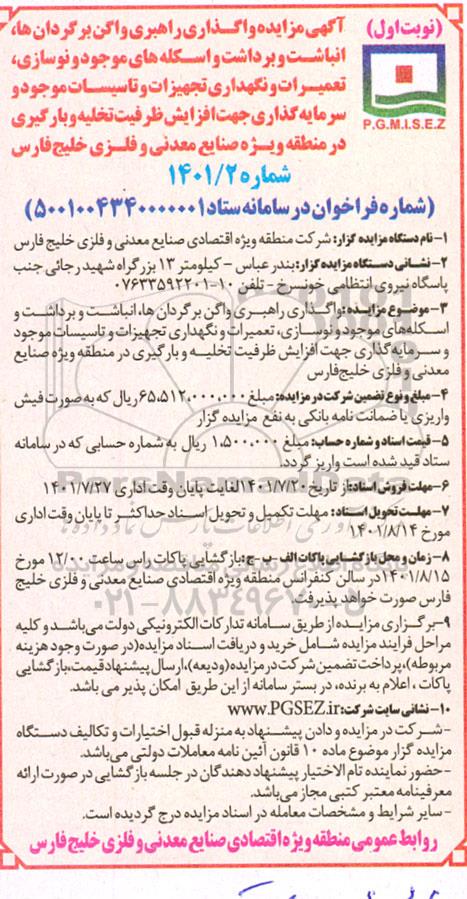 (نوبت اول)
آگهی مزایده واگذاری راهبری واگن برگردان ها،
انباشت و برداشت و اسکله های موجود و نوسازی،
تعمیرات و نگهداری تجهیزات و تاسیسات موجود و
سرمایه گذاری جهت افزایش ظرفیت تخلیه و بارگیری
در منطقه ویژه صنایع معدنی و فلزی خلیج فارس
P.G.M.I.S.E.Z
شماره ۱۴۰۱/۲
(شماره فراخوان در سامانه ستاد ۵۰۰۱۰۰۴۳۴۰۰۰۰۰۰۱)
۱- نام دستگاه مزایده گزار: شرکت منطقه ویژه اقتصادی صنایع معدنی و فلزی خلیج فارس
۲- نشانی دستگاه مزایده گزار: بندر عباس - کیلومتر ۱۳ بزرگراه شهید رجائی جنب
پاسگاه نیروی انتظامی خونسرخ - تلفن ۱۰-۰۷۶۳۳۵۹۲۲۰۱
۳- موضوع مزایده: واگذاری راهبری واگن برگردان ها، انباشت و برداشت و
اسکله‌های موجود و نوسازی، تعمیرات و نگهداری تجهیزات و تاسیسات موجود
و سرمایه گذاری جهت افزایش ظرفیت تخلیه و بارگیری در منطقه ویژه صنایع
معدنی و فلزی خلیج‌فارس
۴- مبلغ و نوع تضمین شرکت در مزایده: مبلغ ۶۵،۵۱۲،۰۰۰،۰۰۰ ریال که به صورت فیش
واریزی یا ضمانت نامه بانکی به نفع مزایده گزار
۵- قیمت اسناد و شماره حساب: مبلغ ۱،۵۰۰،۰۰۰ ریال به شماره حسابی که در سامانه
ستاد قید شده است واریز گردد.
۶- مهلت فروش اسناد: از تاریخ ۱۴۰۱/۷/۲۰ لغایت پایان وقت اداری ۱۴۰۱/۷/۲۷
۷- مهلت تحویل اسناد: مهلت تکمیل و تحویل اسناد حداکثر تا پایان وقت اداری
مورخ ۱۴۰۱/۸/۱۴
۸- زمان و محل بازگشایی پاکات الف - ب - ج: بازگشایی پاکات راس ساعت ۱۲/۰۰ مورخ
۱۴۰۱/۸/۱۵ در سالن کنفرانس منطقه ویژه اقتصادی صنایع معدنی و فلزی خلیج
فارس صورت خواهد پذیرفت
۹- برگزاری مزایده از طریق سامانه تدارکات الکترونیکی دولت می‌باشد و کلیه
مراحل فرایند مزایده شامل خرید و دریافت اسناد مزایده (در صورت وجود هزینه
مربوطه)، پرداخت تضمین شرکت در مزایده (ودیعه)، ارسال پیشنهاد قیمت، بازگشایی
پاکات، اعلام به برنده، در بستر سامانه از این طریق امکان پذیر می باشد.
۱۰- نشانی سایت شرکت: www.PGSEZ.ir
- شرکت در مزایده و دادن پیشنهاد به منزله قبول اختیارات و تکالیف دستگاه
مزایده گزار موضوع ماده ۱۰ قانون آئین نامه معاملات دولتی می‌باشد.
- حضور نماینده تام الاختیار پیشنهاد دهندگان در جلسه بازگشایی در صورت ارائه
معرفینامه معتبر کتبی مجاز می‌باشد.
- سایر شرایط و مشخصات معامله در اسناد مزایده درج گردیده است.
روابط عمومی منطقه ویژه اقتصادی صنایع معدنی و فلزی خلیج فارس
۰۲۱-۸۸۳۴۹۶۷۰-۵